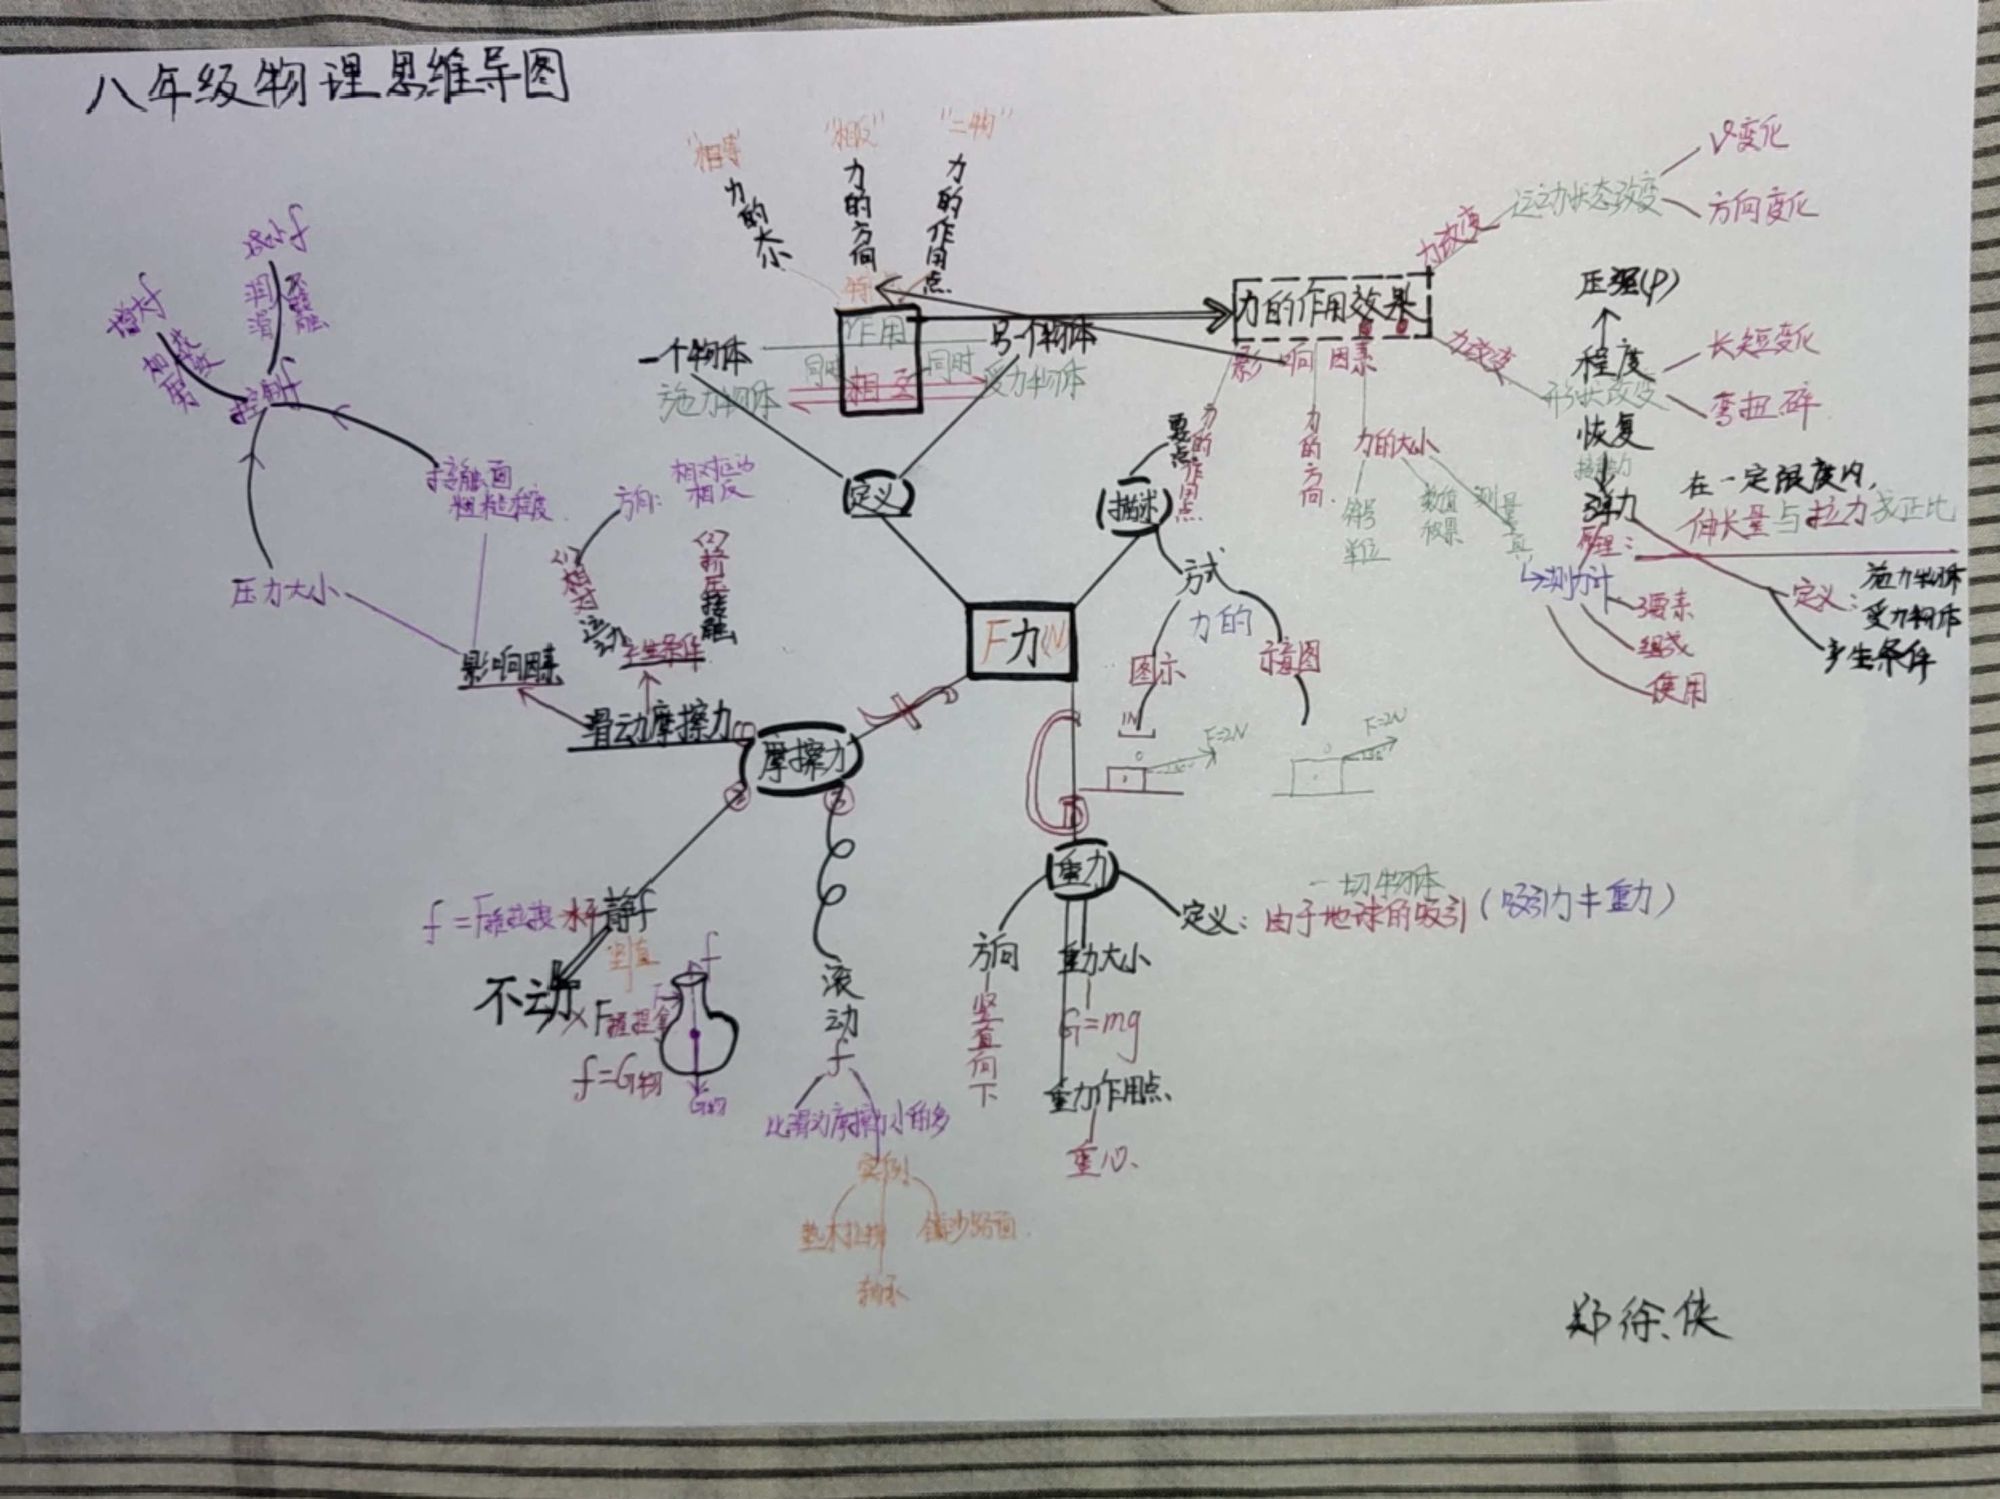 八年级物理思维导图
"相等"
力的大小
"相反"
力的方向
"二物"
力的作用点
特
作用
相互
同时
同时
一个物体
施力物体
另一个物体
受力物体
定义
力的作用效果
影响因素
力的作用点
力的方向
力的大小
符号
单位
数值
效果
测量
力改变
运动状态改变
V变化
方向变化
力改变
形状改变
长短变化
弯扭碎
压强(P)
程度
恢复
弹力
在一定限度内,
伸长量与拉力成正比
原理:
测力计
3要素
组成
使用
定义:
施力物体
受力物体
产生条件
描述
要点
方式
力的
图示
示意图
1N
F=2N
F=2N
F力(N)
重力
定义:由于地球的吸引(吸引力≠重力)
一切物体
方向
竖直向下
重力大小
G=mg
重力作用点
重心
摩擦力
滑动摩擦力
产生条件
(1)相对运动
(2)挤压接触
方向:
相对运动
相反
影响因素
压力大小
接触面
粗糙程度
控制f
增大f
减小f
②
静f
水平
竖直
不动
f=G物
f
G物
③
滚动f
比滑动摩擦力小的多
实例
垫木拉物
铺沙路面
轴承
郑徐侠